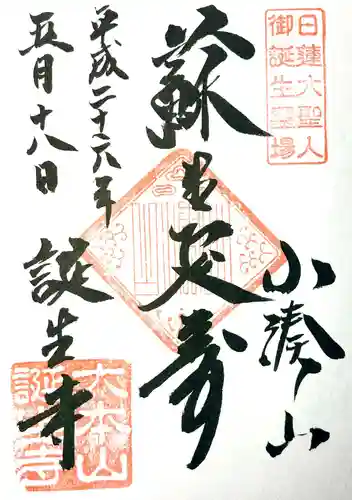 日蓮大聖人
御誕生霊場
小湊山
蘇生延寿
平成二十六年
五月十八日
誕生寺
大本山
誕生寺